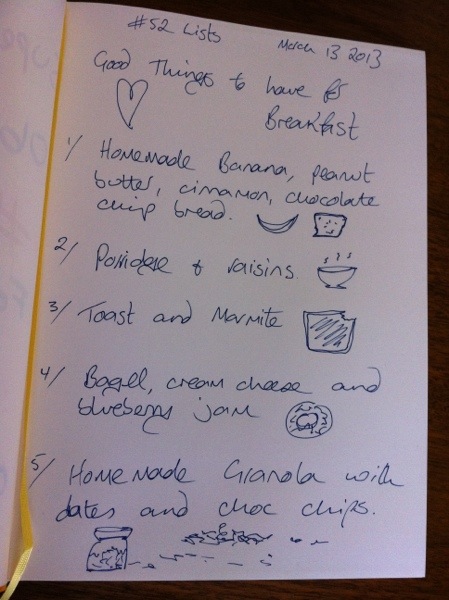 #52 Lists
March 13 2013
Good Things to have for
Breakfast
1/ Homemade Banana, peanut
butter, cinnamon, chocolate
chip bread.
2/ Porridge & raisins.
3/ Toast and Marmite
4/ Bagel, cream cheese and
blueberry jam
5/ Homemade Granola with
dates and choc chips.